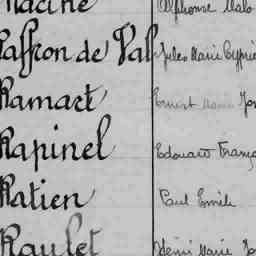 Racine Alphonse Malo
Raffron de Val Jules Marie Cyprie
Ramart Ernest Marie Jos
Rapinel Edouard Franç
Ratien Paul Emile
Raulet Rémi Marie Jo